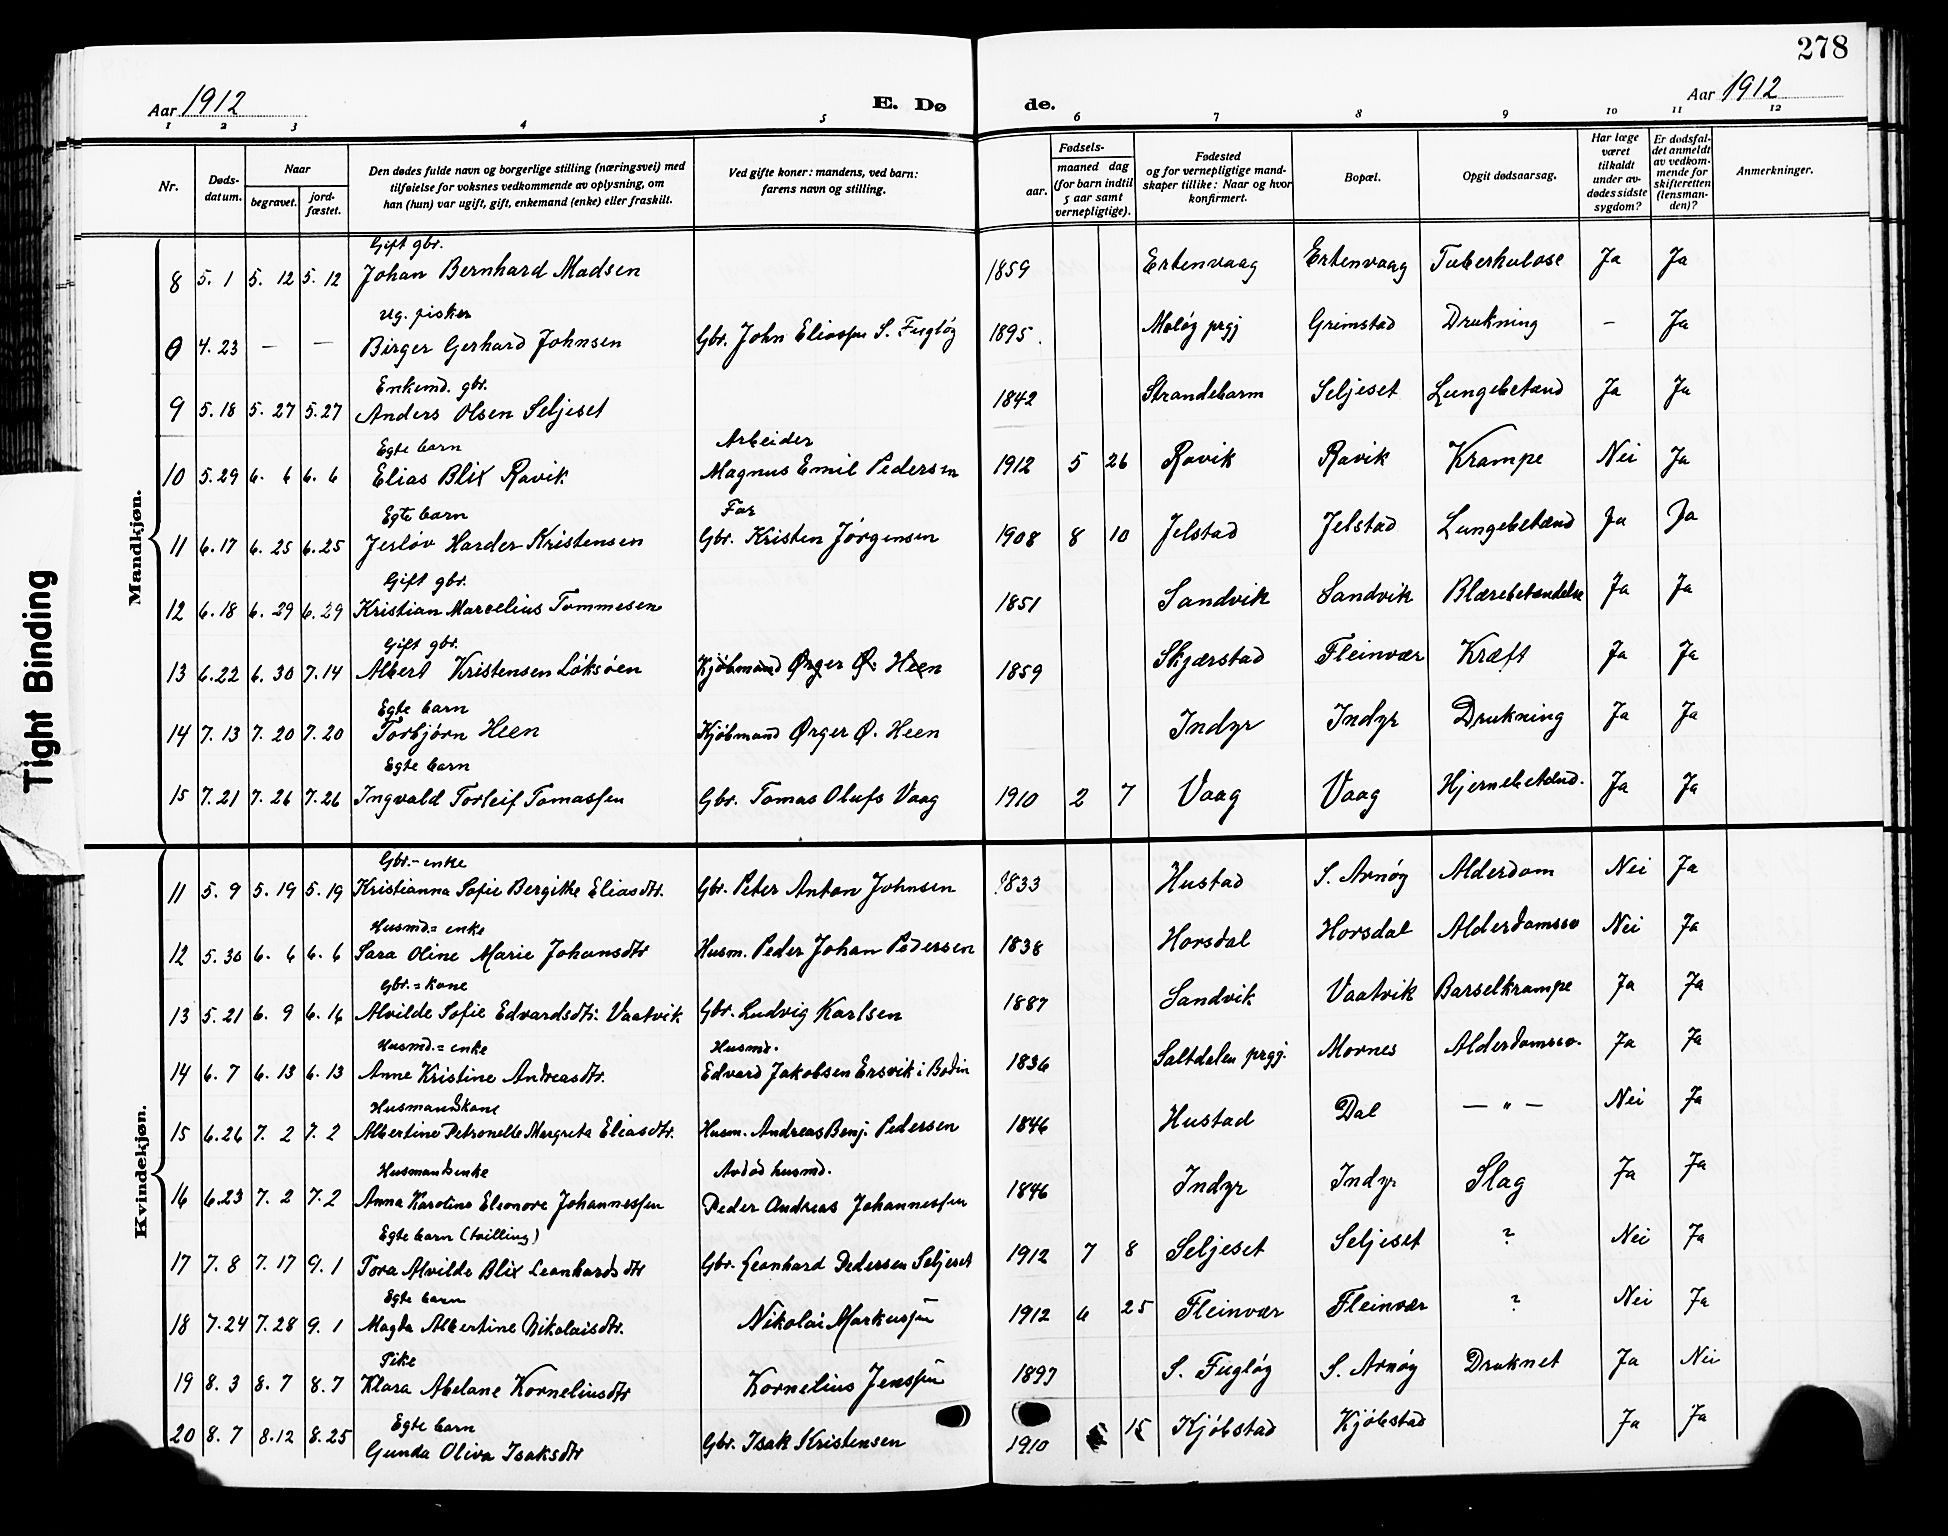 278
Aar 1912
E. Dø
de.
Aar 1912
1 2 3 4 5 6 7 8 9 10 11 12
Nr.
Døds-
datum.
Naar
begravet.
jord-
fæstet.
Den dødes fulde navn og borgerlige stilling (næringsvei) med
tilføielse for voksnes vedkommende av oplysning, om
han (hun) var ugift, gift, enkemand (enke) eller fraskilt.
Ved gifte koner: mandens, ved barn:
farens navn og stilling.
Fødsels-
aar.
maaned dag
(for barn indtil
5 aar samt
vernepligtige).
Fødested
og for vernepligtige mand-
skaper tillike: Naar og hvor
konfirmert.
Bopæl.
Opgit dødsaarsag.
Har læge
været
tilkaldt
under av-
dødes sidste
sygdom?
Er dødsfal-
det anmeldt
av vedkom-
mende for
skifteretten
(lensman-
den)?
Anmerkninger.
Mandkjøn.
Gift gbr.
8 5. 1 5. 12 5. 12 Johan Bernhard Madsen 1859 Ertenvaag Ertenvaag Tuberkulose Ja Ja
Ug. fisker
0 4. 23 — — Birger Gerhard Johnsen Gbr. John Eliassen S. Fugløy 1895. Meløy prgj Grimstad Drukning – Ja
Enkemd. gbr.
9 5. 18 5. 27 5. 27 Anders Olsen Seljeset 1842 Strandebarm Seljeset Lungebetænd Ja Ja
Egte barn Arbeider
10 5. 29 6. 6 6. 6 Elias Blix Ravik Magnus Emil Pedersen 1912 5 26 Ravik Ravik Krampe Nei Ja
Egte barn Far
11 6. 17 6. 25 6. 25 Jerlov Harder Kristensen Gbr. Kristen Jørgensen 1908 8 10 Jelstad Jelstad Lungebetænd Ja Ja
Gift gbr.
12 6. 18 6. 29 6. 29 Kristian Marselius Tommesen 1851 Sandvik Sandvik Blærebetændelse Ja Ja
Gift gbr.
13 6. 22 6. 30 7. 14 Albert Kristensen Løksøen Kjøbmand Ørger Ø. Heen 1859 Skjærstad Fleinvær Kræft Ja Ja
Egte barn
14 7. 13 7. 20 7. 20 Torbjørn Heen Kjøbmand Ørger Ø. Heen Indyr Indyr Drukning Ja Ja
Egte barn
15 7. 21 7. 26 7. 26 Ingvald Torleif Tomassen Gbr. Tomas Olufs Vaag 1910 2 7 Vaag Vaag Hjernebetænd. Ja Ja
Kvindekjøn.
Gbr.- enke
11 5. 9 5. 19 5. 19 Kristianna Sofie Bergitte Eliasdtr. Gbr. Peter Anton Johnsen 1833 Hustad S. Arnøy Alderdom Nei Ja
Husmd.= enke
12 5. 30 6. 6 6. 6 Sara Oline Marie Johansdtr Husm. Peder Johan Pedersen 1838 Horsdal Horsdal Alderdomssv Nei Ja
Gbr.= kone
13 5. 21 6. 9 6. 16 Alvilde Sofie Edvardsdtr. Vaatvik Gbr. Ludvig Karlsen 1887 Sandvik Vaatvik Barselkrampe Ja Ja
Husmd.= enke Husmd.
14 6. 7 6. 13 6. 13 Anne Kristine Andreasdtr. Edvard Jakobsen Ersvik i Bodin 1836 Saltdalen prgj. Mornes Alderdomssv. Ja Ja
Husmandskone
15 6. 26 7. 2 7. 2 Albertine Petronelle Margreta Eliasdtr. Husm. Andreas Benj. Pedersen 1846 Hustad Dal — " — Nei Ja
Husmandsenke Avdød husmd.
16 6. 23 7. 2 7. 2 Anna Karoline Eleonore Johannessen Peder Andreas Johannessen 1846 Indyr Indyr Slag Ja Ja
Egte barn (tvilling)
17 7. 8 7. 17 9. 1 Tora Alvilde Blix Leonhardsdtr Gbr. Leonhard Pedersen Seljeset 1912 7 8 Seljeset Seljeset ? Nei Ja
Egte barn
18 7. 24 7. 28 9. 1 Magda Albertine Nikolaisdtr. Nikolai Markussen 1912 6 25 Fleinvær Fleinvær ? Nei Ja
Pike
19 8. 3 8. 7 8. 7 Klara Abelane Korneliusdtr Kornelius Jenssen 1897 S. Fugløy S. Arnøy Druknet Ja Nei
Egte barn
20 8. 7 8. 12 8. 25 Gunda Oliva Isaksdtr Gbr. Isak Kristensen 1910 15 Kjøbstad Kjøbstad Ja Ja
Tight Binding